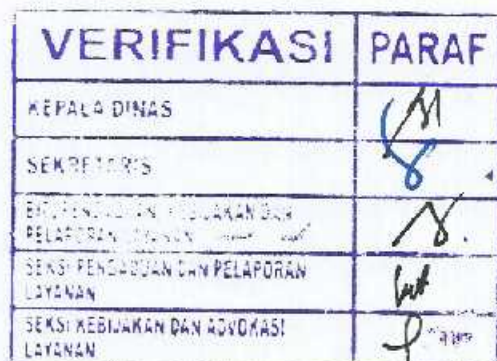 VERIFIKASI PARAF
KEPALA DINAS
SEKRETARIS
KEBIJAKAN DAN
PELAPORAN LAYANAN
SEKSI PENGADUAN DAN PELAPORAN
LAYANAN
SEKSI KEBIJAKAN DAN ADVOKASI
LAYANAN